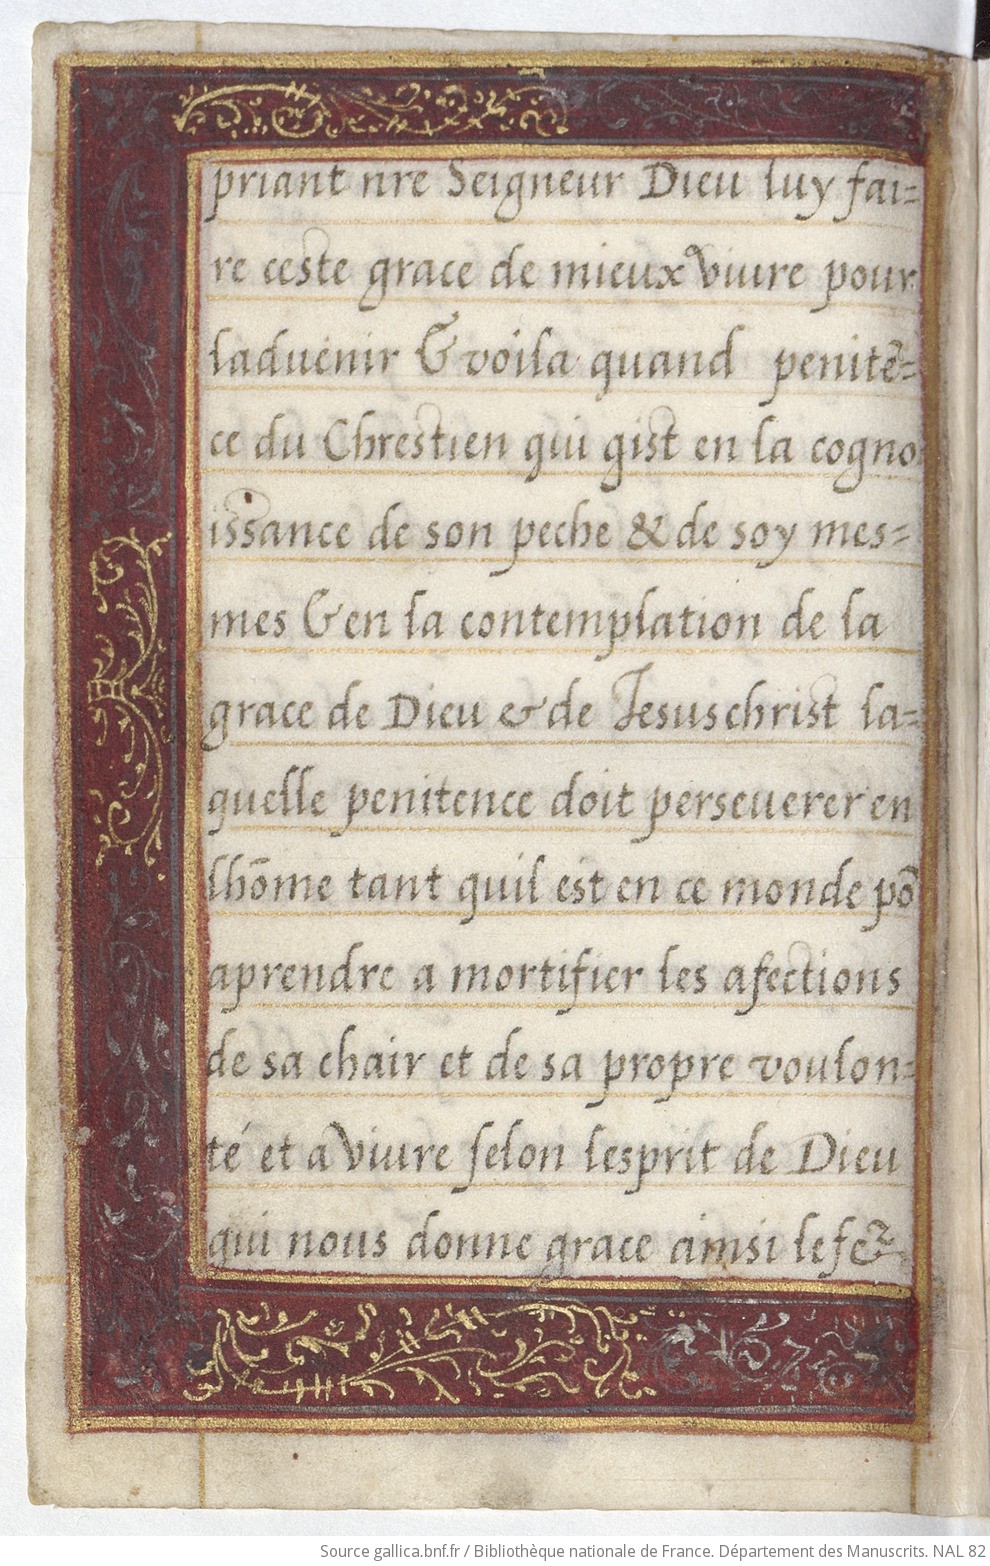 priant nre Seigneur Dieu luy fai=
re ceste grace de mieux viure pour
laduenir & voila quand penitē=
ce du Chrestien qui gist en la cogno
issance de son peche & de soy mes=
mes & en la contemplation de la
grace de Dieu & de Jesuschrist la=
quelle penitence doit perseuerer en
lhōme tant quil est en ce monde pō
aprendre a mortifier les afections
de sa chair et de sa propre voulon=
té et a viure selon lesprit de Dieu
qui nous donne grace ainsi le
Source gallica.bnf.fr / Bibliothèque nationale de France. Département des Manuscrits. NAL 82